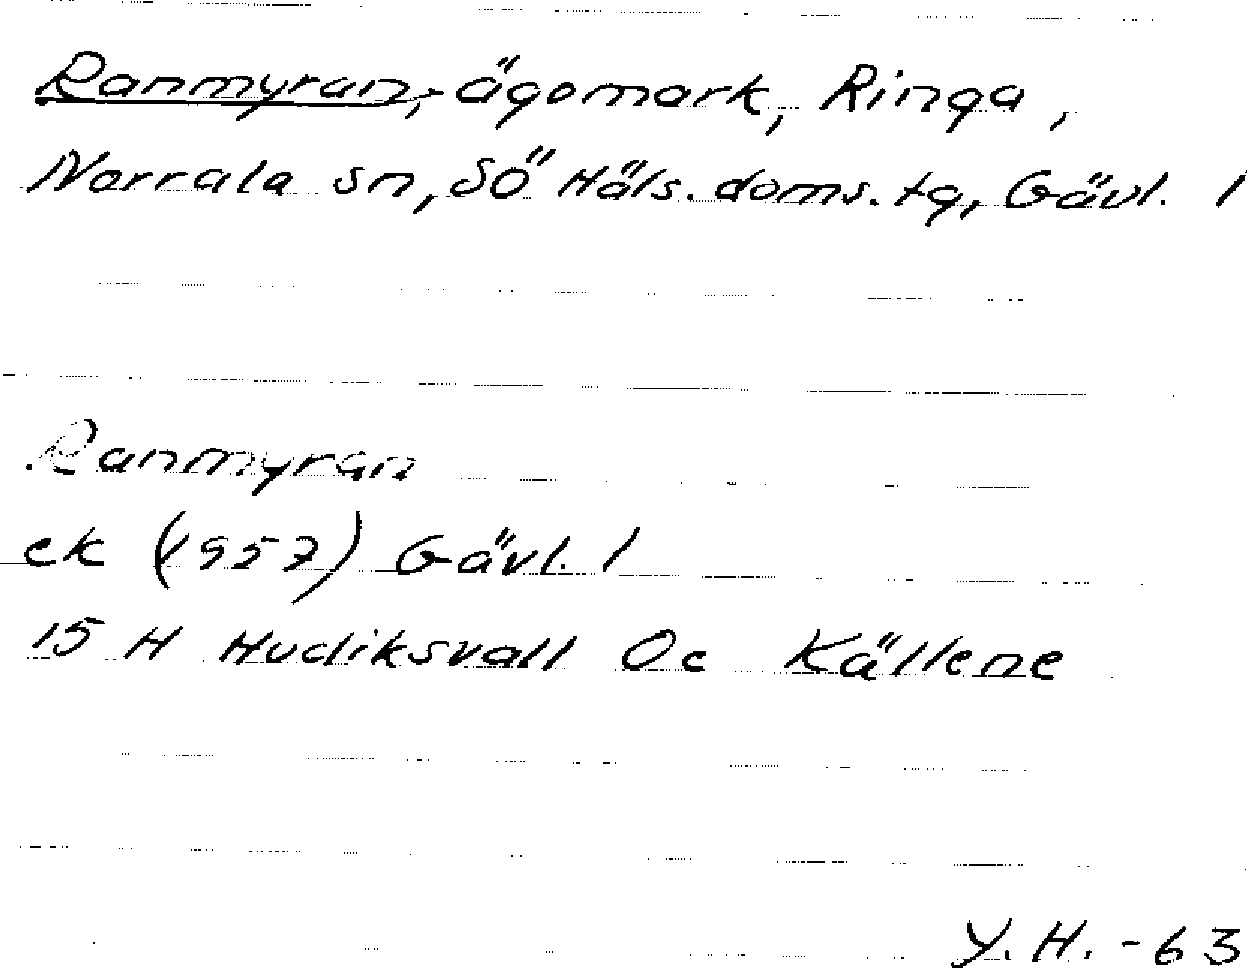 Ranmyran, ägomark, Ringa,
Norrala sn, SÖ Häls. doms. tg, Gävl. l
Ranmyran
ek (1957) Gävl. l
15 H Hudiksvall Oc Källene
Y. H. -63